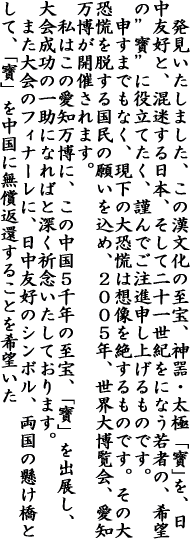 発見いたしました、この漢文化の至宝、神器・太極「寶」を、日
中友好と、混迷する日本、そして二十一世紀をになう若者の、希望
の”寶”に役立てたく、謹んでご注進申し上げるものです。
申すまでもなく、現下の大恐慌は想像を絶するものです。その大
恐慌を脱する国民の願いを込め、2005年、世界大博覧会、愛知
万博が開催されます。
私はこの愛知万博に、この中国5千年の至宝、「寶」を出展し、
大会成功の一助になればと、深く祈念いたしております。
また大会のフィナーレに、日中友好のシンボル、両国の懸け橋と
して、「寶」を中国に無償返還することを希望いた